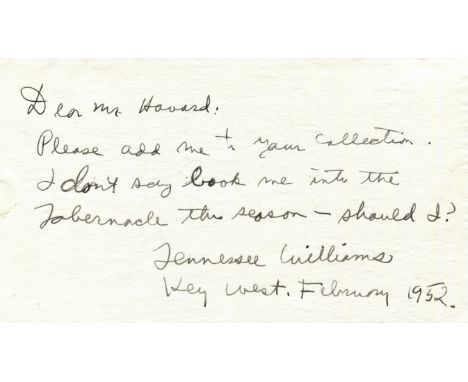 Dear Mr. Havard:
Please add me to your collection.
I don't say book me into the
Tabernacle this season — should I?
Tennessee Williams
Key West. February 1952.